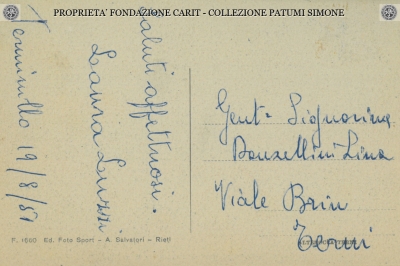 PROPRIETA' FONDAZIONE CARIT - COLLEZIONE PATUMI SIMONE
Terminillo 19/8/51
Saluti affettuosi.
Laura Luzzi
Gent. Signorina
Bonzellini Lina
Viale Brin
Terni
F. 1600 Ed. Foto Sport - A. Salvatori - Rieti